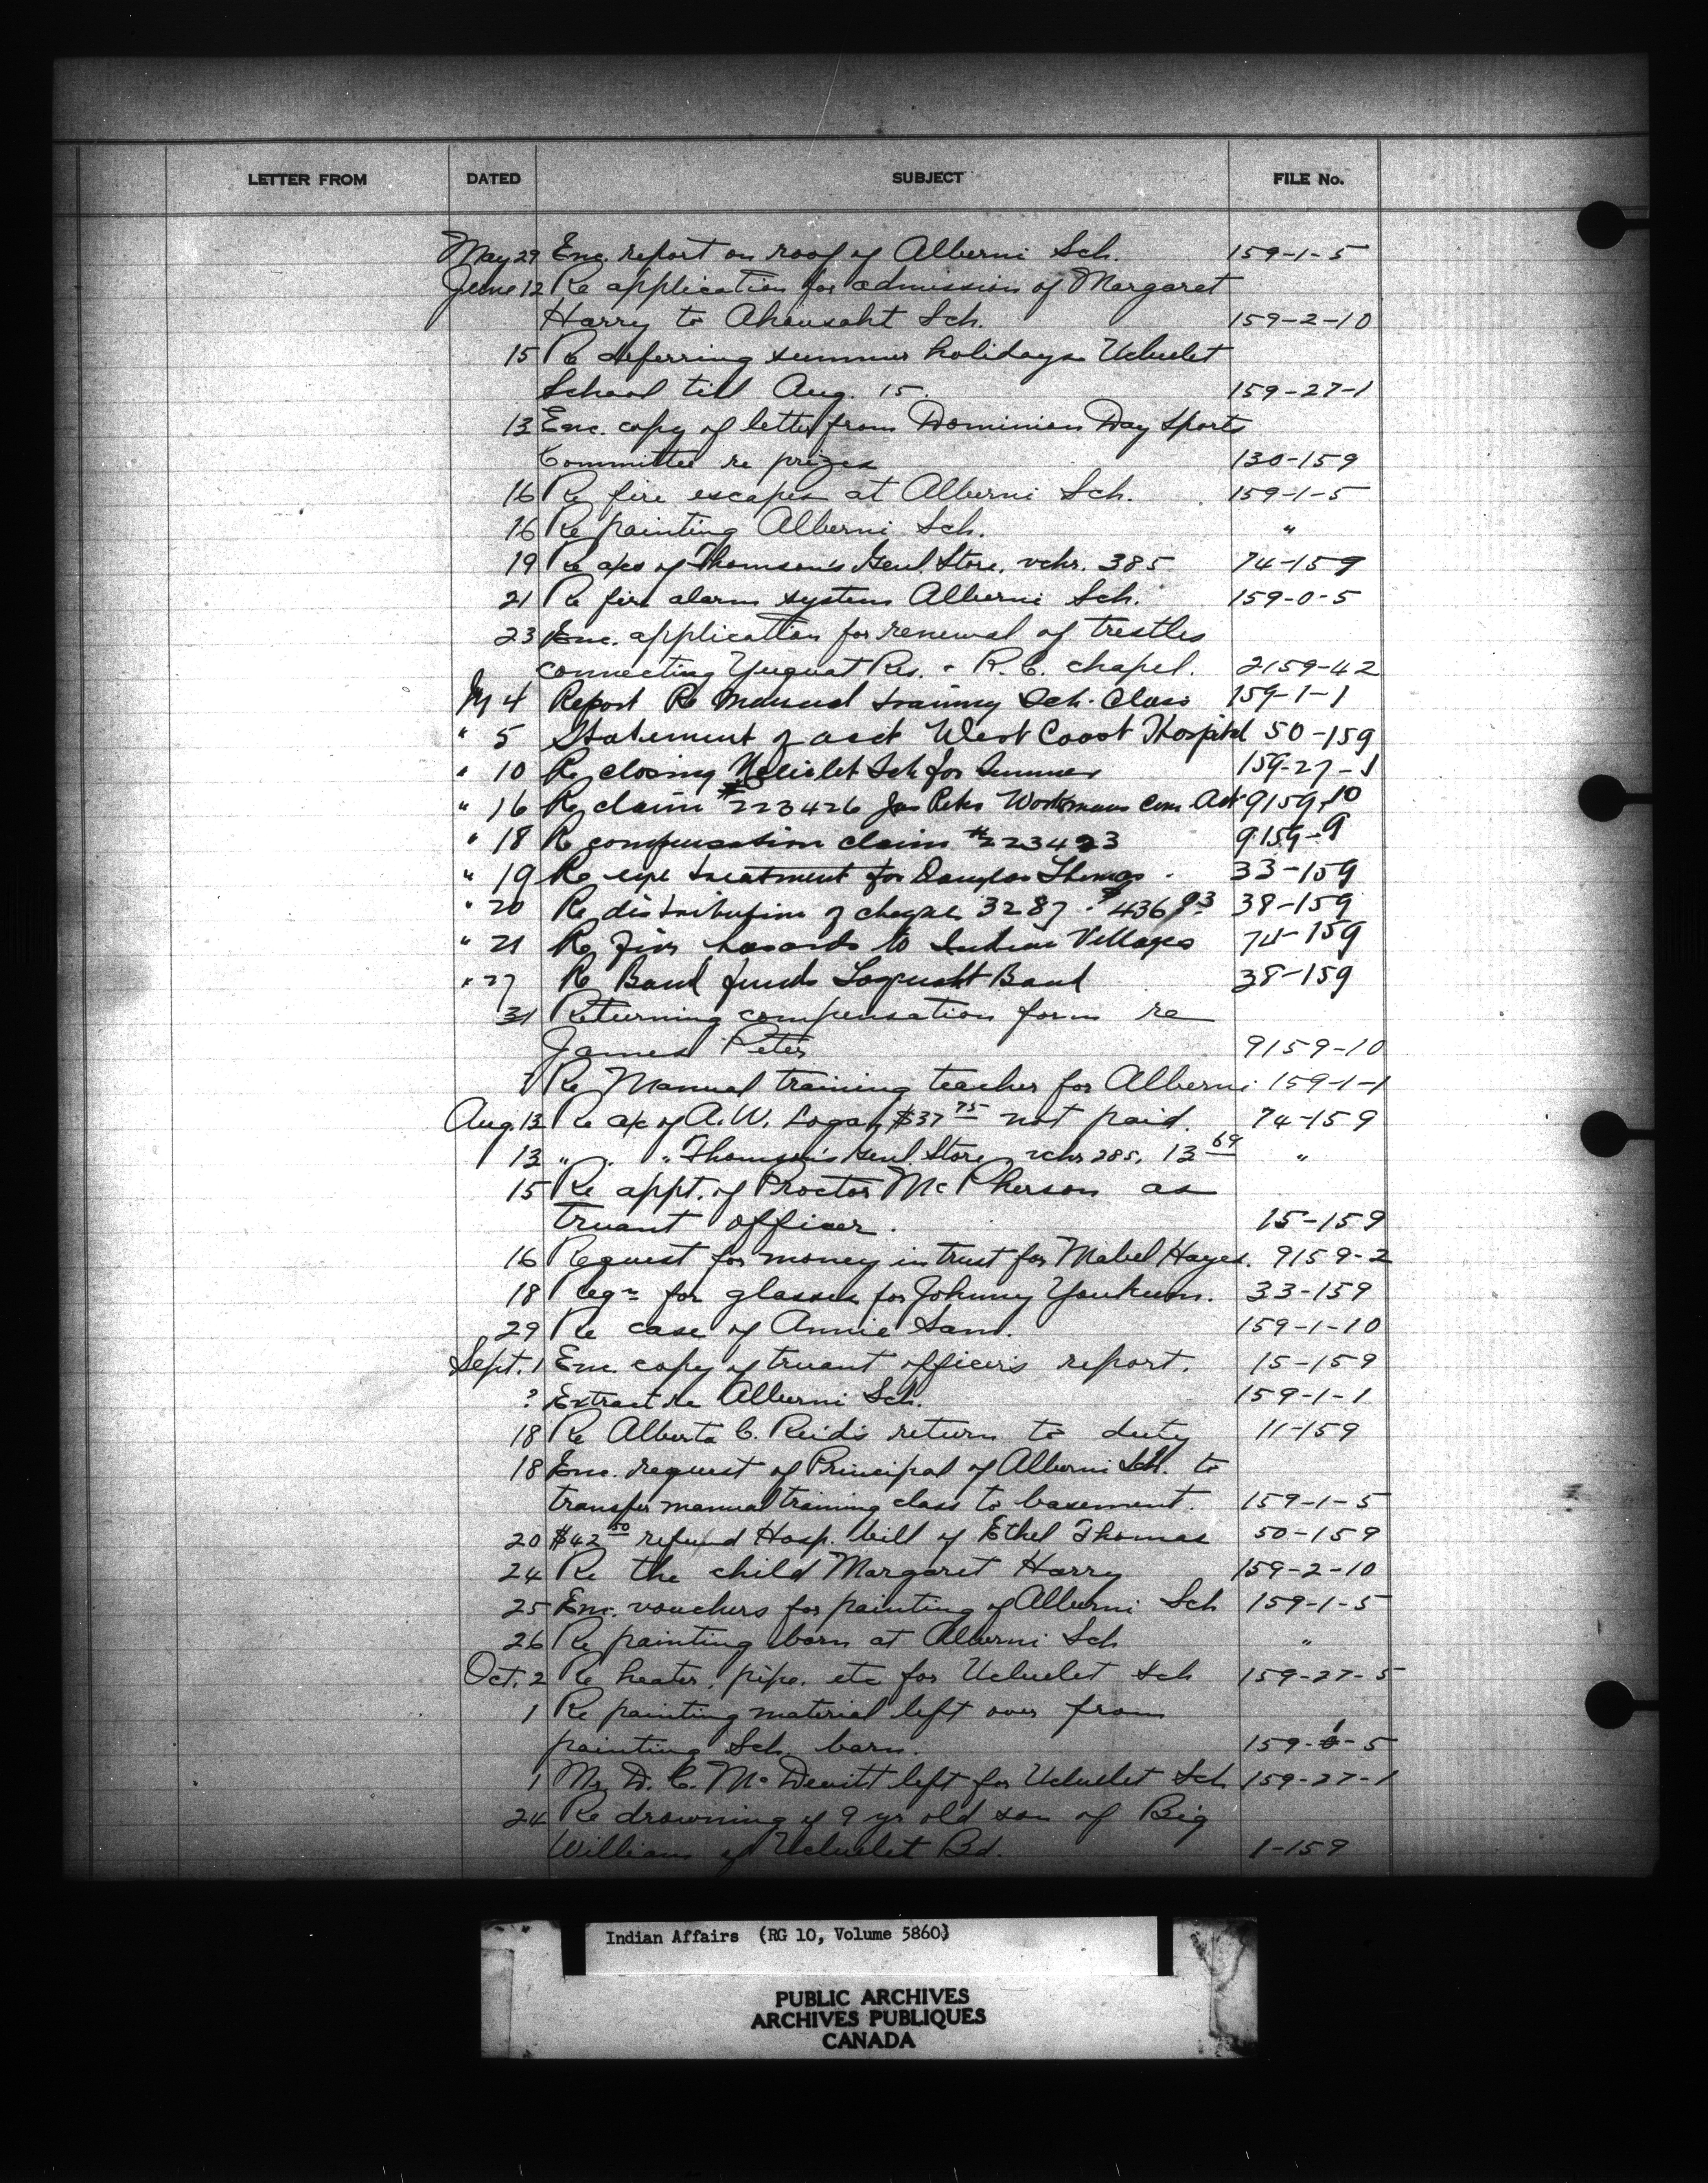 LETTER FROM DATED SUBJECT FILE No.
May 29 Enc. report on roof of Alberni Sch. 159-1-5
June 12 Re application for admission of Margaret
Harry to Ahousaht Sch. 159-2-10
15 Re deferring summer holidays Ucluelet
School till Aug. 15. 159-27-1
13 Enc. copy of letter from Dominion Day Sports
Committee re prizes 130-159
16 Re fire escapes at Alberni Sch. 159-1-5
16 Re painting Alberni Sch. "
19 Re a/cs of Thomson's Genl. Store, vchr. 385 74-159
21 Re fire alarm system Alberni Sch. 159-0-5
23 Enc. application for renewal of trestles
connecting Yuquot Res. & R.C. chapel. 2159-42
4 Report Re Manual training Sch. Class 159-1-1
" 5 Statement of acct West Coast Hospital 50-159
" 10 Re closing Ucluelet Sch for Summer 159-27-1
" 16 Re claim #223426 Jas Peter Workmans Com. Act 9159-10
" 18 Re compensation claim #223423 9159-9
" 19 Re eye treatment for Douglas Thomas. 33-159
" 20 Re distribution of cheque 3287 - $436.93 38-159
" 21 Re Fire hazards to Indian Villages 74-159
" 27 Re Band funds Toquaht Band 38-159
31 Returning compensation form re
James Peter 9159-10
? Re Manual training teacher for Alberni 159-1-1
Aug. 13 Re a/c of A.W. Logan, $37 75 not paid. 74-159
13 " " " Thomson's Genl. Store, vchr 285, 13 69 "
15 Re appt. of Proctor McPherson as
truant officer. 15-159
16 Request for money in trust for Mabel Hayes. 9159-2
18 Reqn for glasses for Johnny Youkum. 33-159
29 Re case of Annie Sam. 159-1-10
Sept. 1 Enc. copy of truant officer's report. 15-159
? Extract re Alberni Sch. 159-1-1
18 Re Alberta C. Reid's return to duty 11-159
18 Enc. request of Principal of Alberni Sch. to
transfer manual training class to basement. 159-1-5
20 $42 50 refund Hosp. bill of Ethel Thomas 50-159
24 Re the child Margaret Harry 159-2-10
25 Enc. vouchers for painting of Alberni Sch 159-1-5
26 Re painting barn at Alberni Sch "
Oct. 2 Re heater, pipe, etc for Ucluelet Sch 159-27-5
1 Re painting material left over from
painting Sch. barn. 159-1-5
1 Mr D. C. McDevitt left for Ucluelet Sch 159-27-1
24 Re drowning of 9 yr old son of Big
William of Ucluelet Bd. 1-159
Indian Affairs (RG 10, Volume 5860)
PUBLIC ARCHIVES
ARCHIVES PUBLIQUES
CANADA